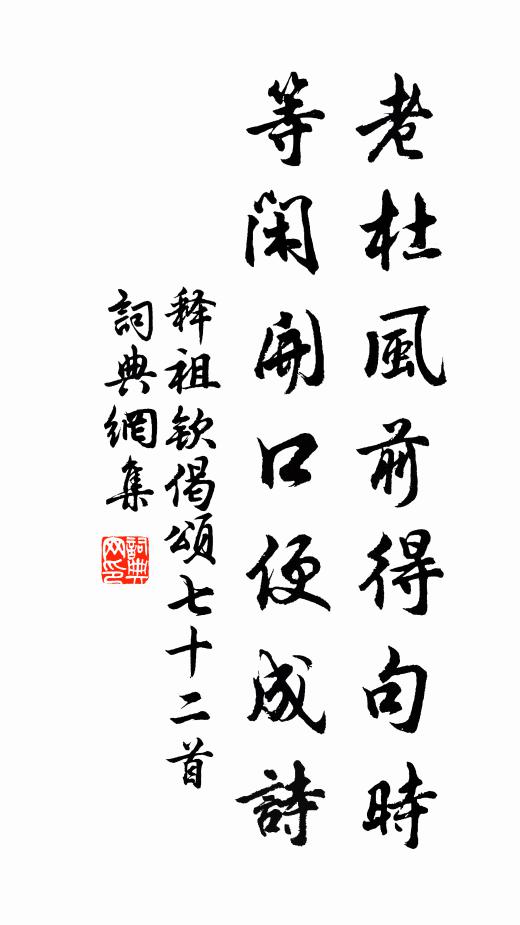 老杜風前得句時
等閑開口便成詩
释祖欽偈頌七十二首
詞典網集
詞典網印